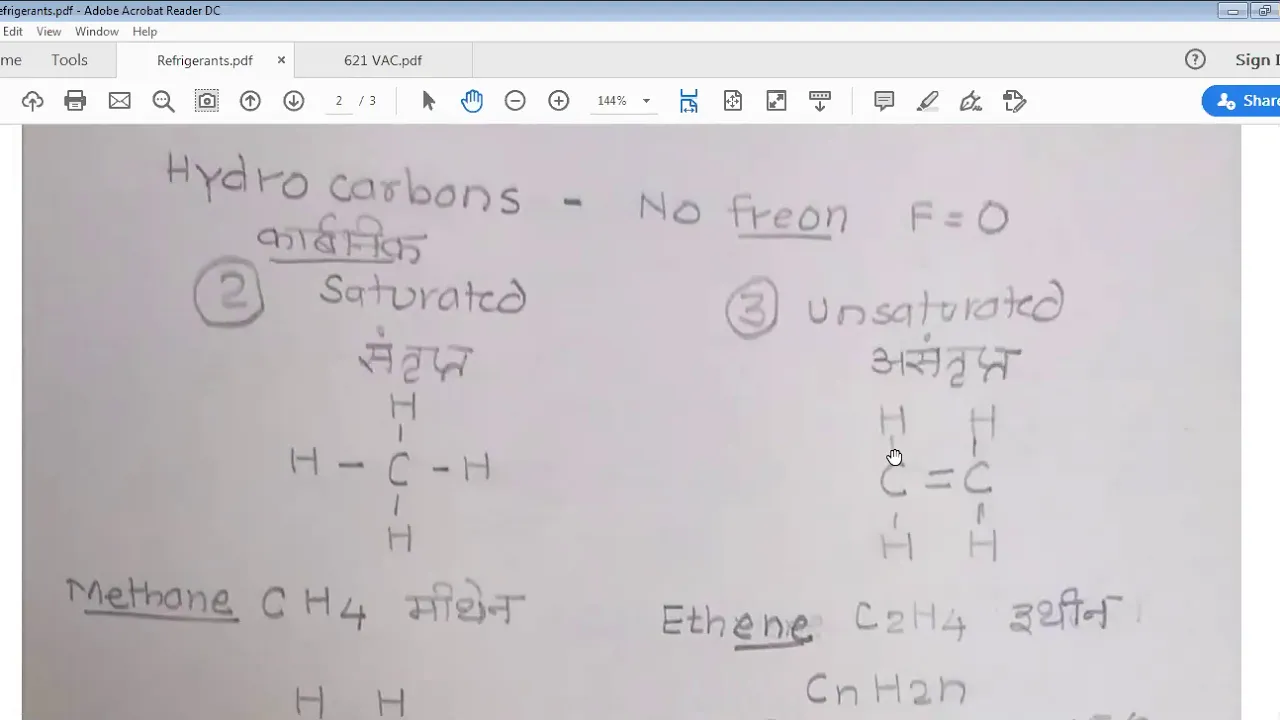 efrigerants.pdf - Adobe Acrobat Reader DC
Edit View Window Help
me Tools Refrigerants.pdf × 621 VAC.pdf ? Sign I
2 / 3 144% Share
Hydro carbons - No freon F = 0
कार्बनिक
2 Saturated 3 Unsaturated
संतृप्त असंतृप्त
H H H
H - C - H C = C
H H H
Methane CH4 मीथेन Ethene C2H4 इथीन
H H CnH2n